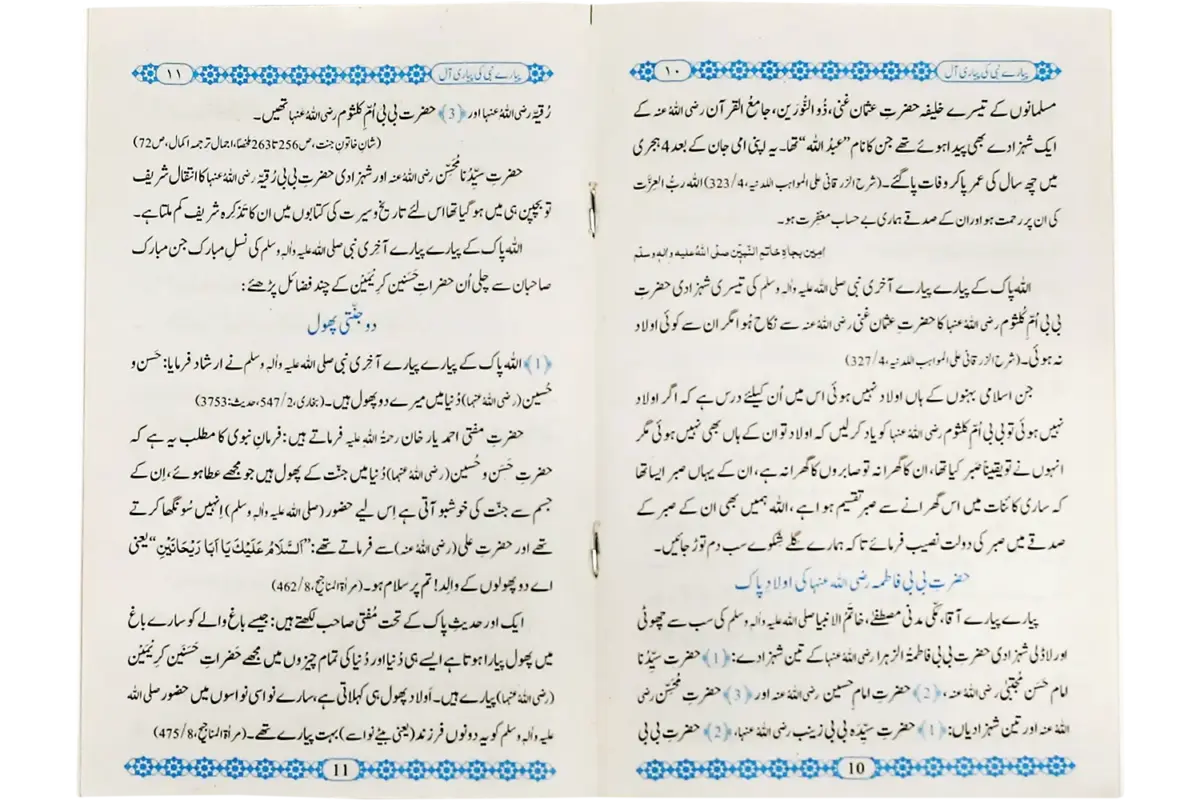 پیارے نبی کی پیاری آل
۱۰
مسلمانوں کے تیسرے خلیفہ حضرتِ عثمانِ غنی، ذُو النُّورَین، جامعُ القرآن رضی اللہ عنہ کے
ایک شہزادے بھی پیدا ہوئے تھے جن کا نام ”عبدُ اللہ“ تھا۔ یہ اپنی امی جان کے بعد 4 ہجری
میں چھ سال کی عمر پاکر وفات پاگئے۔ (شرح الزرقانی علی المواہب اللدنیہ، 4/323) اللہ ربُّ العِزَّت
کی ان پر رحمت ہو اور ان کے صدقے ہماری بے حساب مغفِرت ہو۔
اٰمِین بِجاہِ خاتَمِ النَّبِیّیْن صلَّی اللہُ علیہ واٰلہٖ وسلَّم
اللہ پاک کے پیارے پیارے آخری نبی صلی اللہ علیہ واٰلہٖ وسلم کی تیسری شہزادی حضرتِ
بی بی اُمِّ کُلثوم رضی اللہ عنہا کا حضرتِ عثمانِ غنی رضی اللہ عنہ سے نکاح ہُوا مگر ان سے کوئی اولاد
نہ ہوئی۔ (شرح الزرقانی علی المواہب اللدنیہ، 4/327)
جن اسلامی بہنوں کے ہاں اولاد نہیں ہوئی اس میں اُن کیلئے درس ہے کہ اگر اولاد
نہیں ہوئی تو بی بی اُمِّ کلثوم رضی اللہ عنہا کو یاد کرلیں کہ اولاد تو ان کے ہاں بھی نہیں ہوئی مگر
انہوں نے تو یقیناً صَبر کیا تھا، ان کا گھرانہ تو صابروں کا گھرانہ ہے، ان کے یہاں صبر ایسا تھا
کہ ساری کائنات میں اس گھرانے سے صبر تقسیم ہوا ہے، اللہ ہمیں بھی ان کے صبر کے
صدقے میں صبر کی دولت نصیب فرمائے تاکہ ہمارے گِلے شِکوے سب دم توڑ جائیں۔
حضرتِ بی بی فاطمہ رضی اللہ عنہا کی اولادِ پاک
پیارے پیارے آقا، مکّی مدنی مصطفےٰ، خاتَمُ الانبیا صلی اللہ علیہ واٰلہٖ وسلم کی سب سے چھوٹی
اور لاڈلی شہزادی حضرتِ بی بی فاطمۃُ الزہرا رضی اللہ عنہا کے تین شہزادے: ﴿1﴾ حضرتِ سیِّدُنا
امام حَسَن مُجتَبیٰ رضی اللہ عنہ، ﴿2﴾ حضرتِ امام حسین رضی اللہ عنہ اور ﴿3﴾ حضرتِ مُحَسِّن رضی
اللہ عنہ اور تین شہزادیاں: ﴿1﴾ حضرتِ سیِّدَہ بی بی زینب رضی اللہ عنہا، ﴿2﴾ حضرتِ بی بی
10
پیارے نبی کی پیاری آل
۱۱
رُقیّہ رضی اللہ عنہا اور ﴿3﴾ حضرتِ بی بی اُمِّ کلثوم رضی اللہ عنہا تھیں۔
(شانِ خاتونِ جنت، ص256تا263 ملخصا، اجمال ترجمہ اکمال، ص72)
حضرتِ سیِّدُنا مُحَسِّن رضی اللہ عنہ اور شہزادی حضرتِ بی بی رُقیّہ رضی اللہ عنہا کا انتقال شریف
تو بچپن ہی میں ہو گیا تھا اس لئے تاریخ و سیرت کی کتابوں میں ان کا تذکرہ شریف کم ملتا ہے۔
اللہ پاک کے پیارے پیارے آخری نبی صلی اللہ علیہ واٰلہٖ وسلم کی نسلِ مبارک جن مبارک
صاحبان سے چلی اُن حضراتِ حَسَنینِ کَرِیمَین کے چند فضائل پڑھئے:
دو جنّتی پھول
﴿1﴾ اللہ پاک کے پیارے پیارے آخری نبی صلی اللہ علیہ واٰلہٖ وسلم نے ارشاد فرمایا: حَسَن و
حُسین (رضی اللہ عنہما) دُنیا میں میرے دو پھول ہیں۔ (بخاری، 2/547، حدیث: 3753)
حضرت مفتی احمد یار خان رحمۃُ اللہ علیہ فرماتے ہیں: فرمانِ نبوی کا مطلب یہ ہے کہ
حضرت حَسَن و حُسین (رضی اللہ عنہما) دُنیا میں جنّت کے پھول ہیں جو مجھے عطا ہوئے، اِن کے
جسم سے جنّت کی خوشبو آتی ہے اِس لیے حضور (صلی اللہ علیہ واٰلہٖ وسلم) اِنہیں سُونگھا کرتے
تھے اور حضرتِ علی (رضی اللہ عنہ) سے فرماتے تھے: ”اَلسَّلَامُ عَلَیْكَ یَا اَبَا رَیْحَانَیْنِ“ یعنی
اے دو پھولوں کے والِد! تم پر سلام ہو۔ (مراٰۃ المناجیح، 8/462)
ایک اور حدیثِ پاک کے تحت مُفتی صاحب لکھتے ہیں: جیسے باغ والے کو سارے باغ
میں پھول پیارا ہوتا ہے ایسے ہی دُنیا اور دُنیا کی تمام چیزوں میں مجھے حضراتِ حَسَنَین کَرِیمَین
(رضی اللہ عنہما) پیارے ہیں۔ اَولاد پھول ہی کہلاتی ہے، سارے نواسی نواسوں میں حضور صلی اللہ
علیہ واٰلہٖ وسلم کو یہ دونوں فرزند (یعنی بیٹے نواسے) بہت پیارے تھے۔ (مراٰۃ المناجیح، 8/475)
11